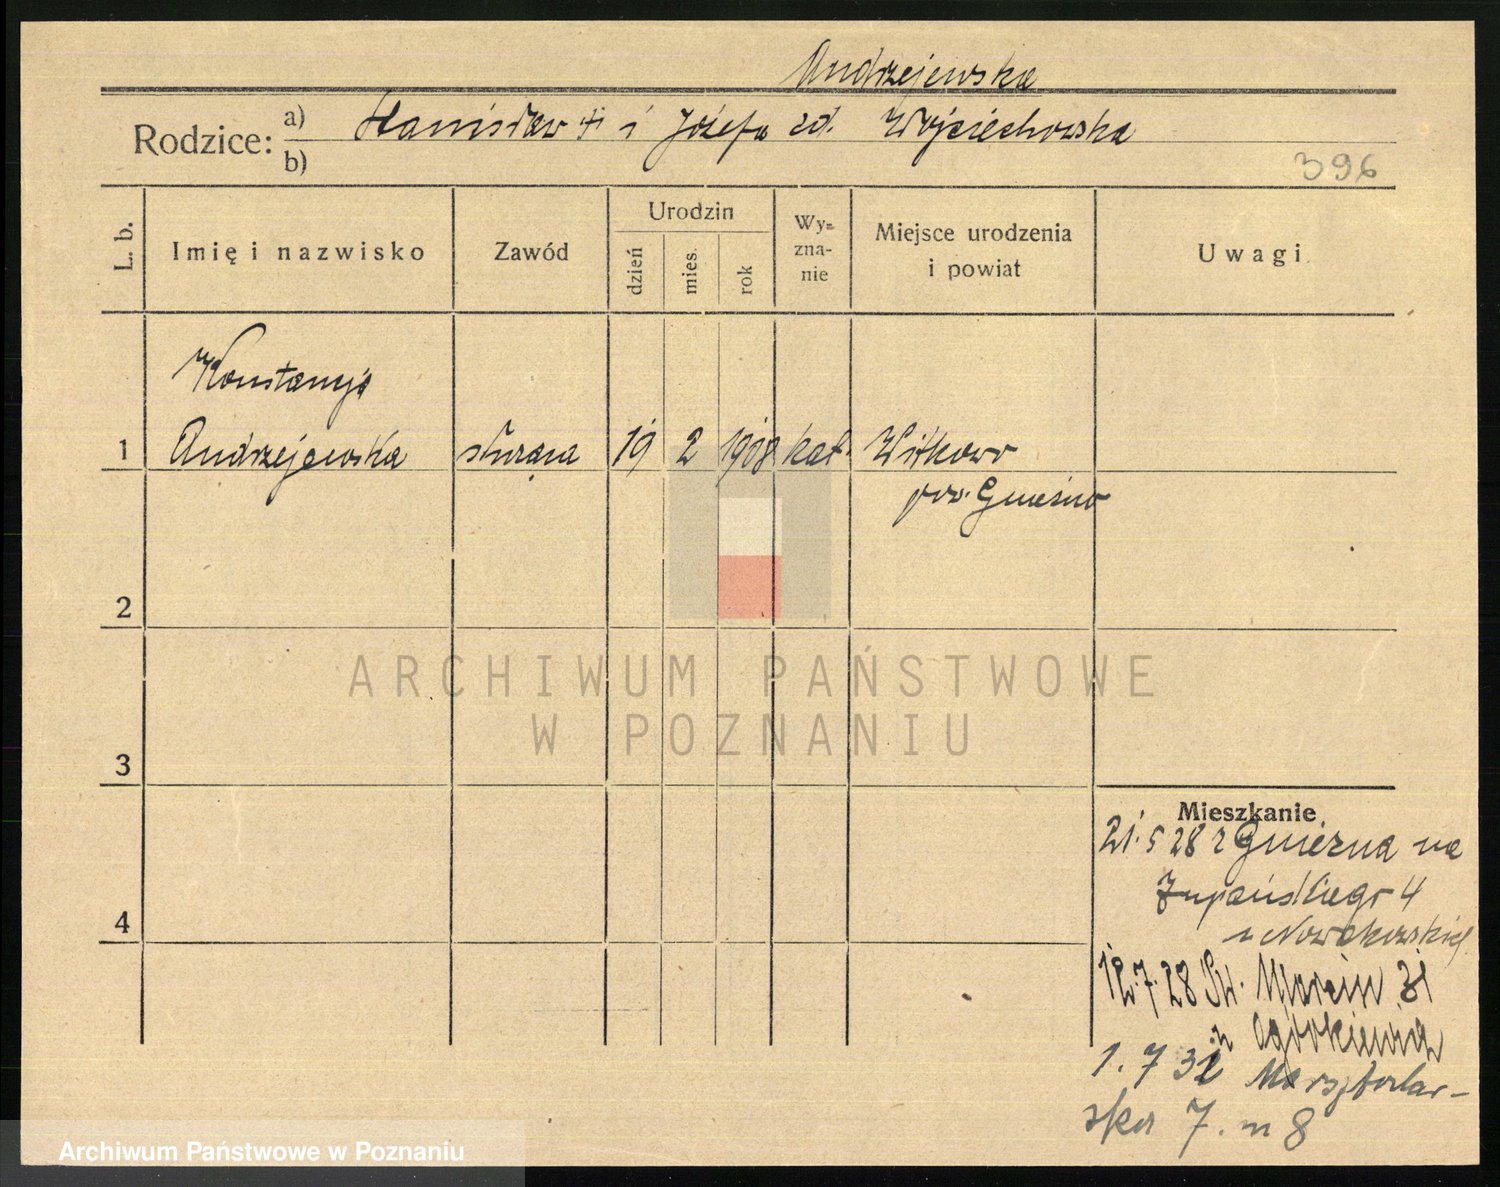 Andrzejewska
Rodzice: a) Stanisław † i Józefa zd. Wojciechowska
b)
396
L. b. Imię i nazwisko Zawód Urodzin dzień mies. rok Wy=zna-nie Miejsce urodzenia i powiat Uwagi
Konstancja
1 Andrzejewska służąca 19 2 1908 kat. Witkowo
pow. Gniezno
2
ARCHIWUM PAŃSTWOWE
W POZNANIU
3
Mieszkanie
21.5 28 z Gniezna na
Żupańskiego 4
u Nowakowskiej
4
12.7.28 Św. Marcin 31
u
1. 7 32
ska 7. m 8
Archiwum Państwowe w Poznaniu